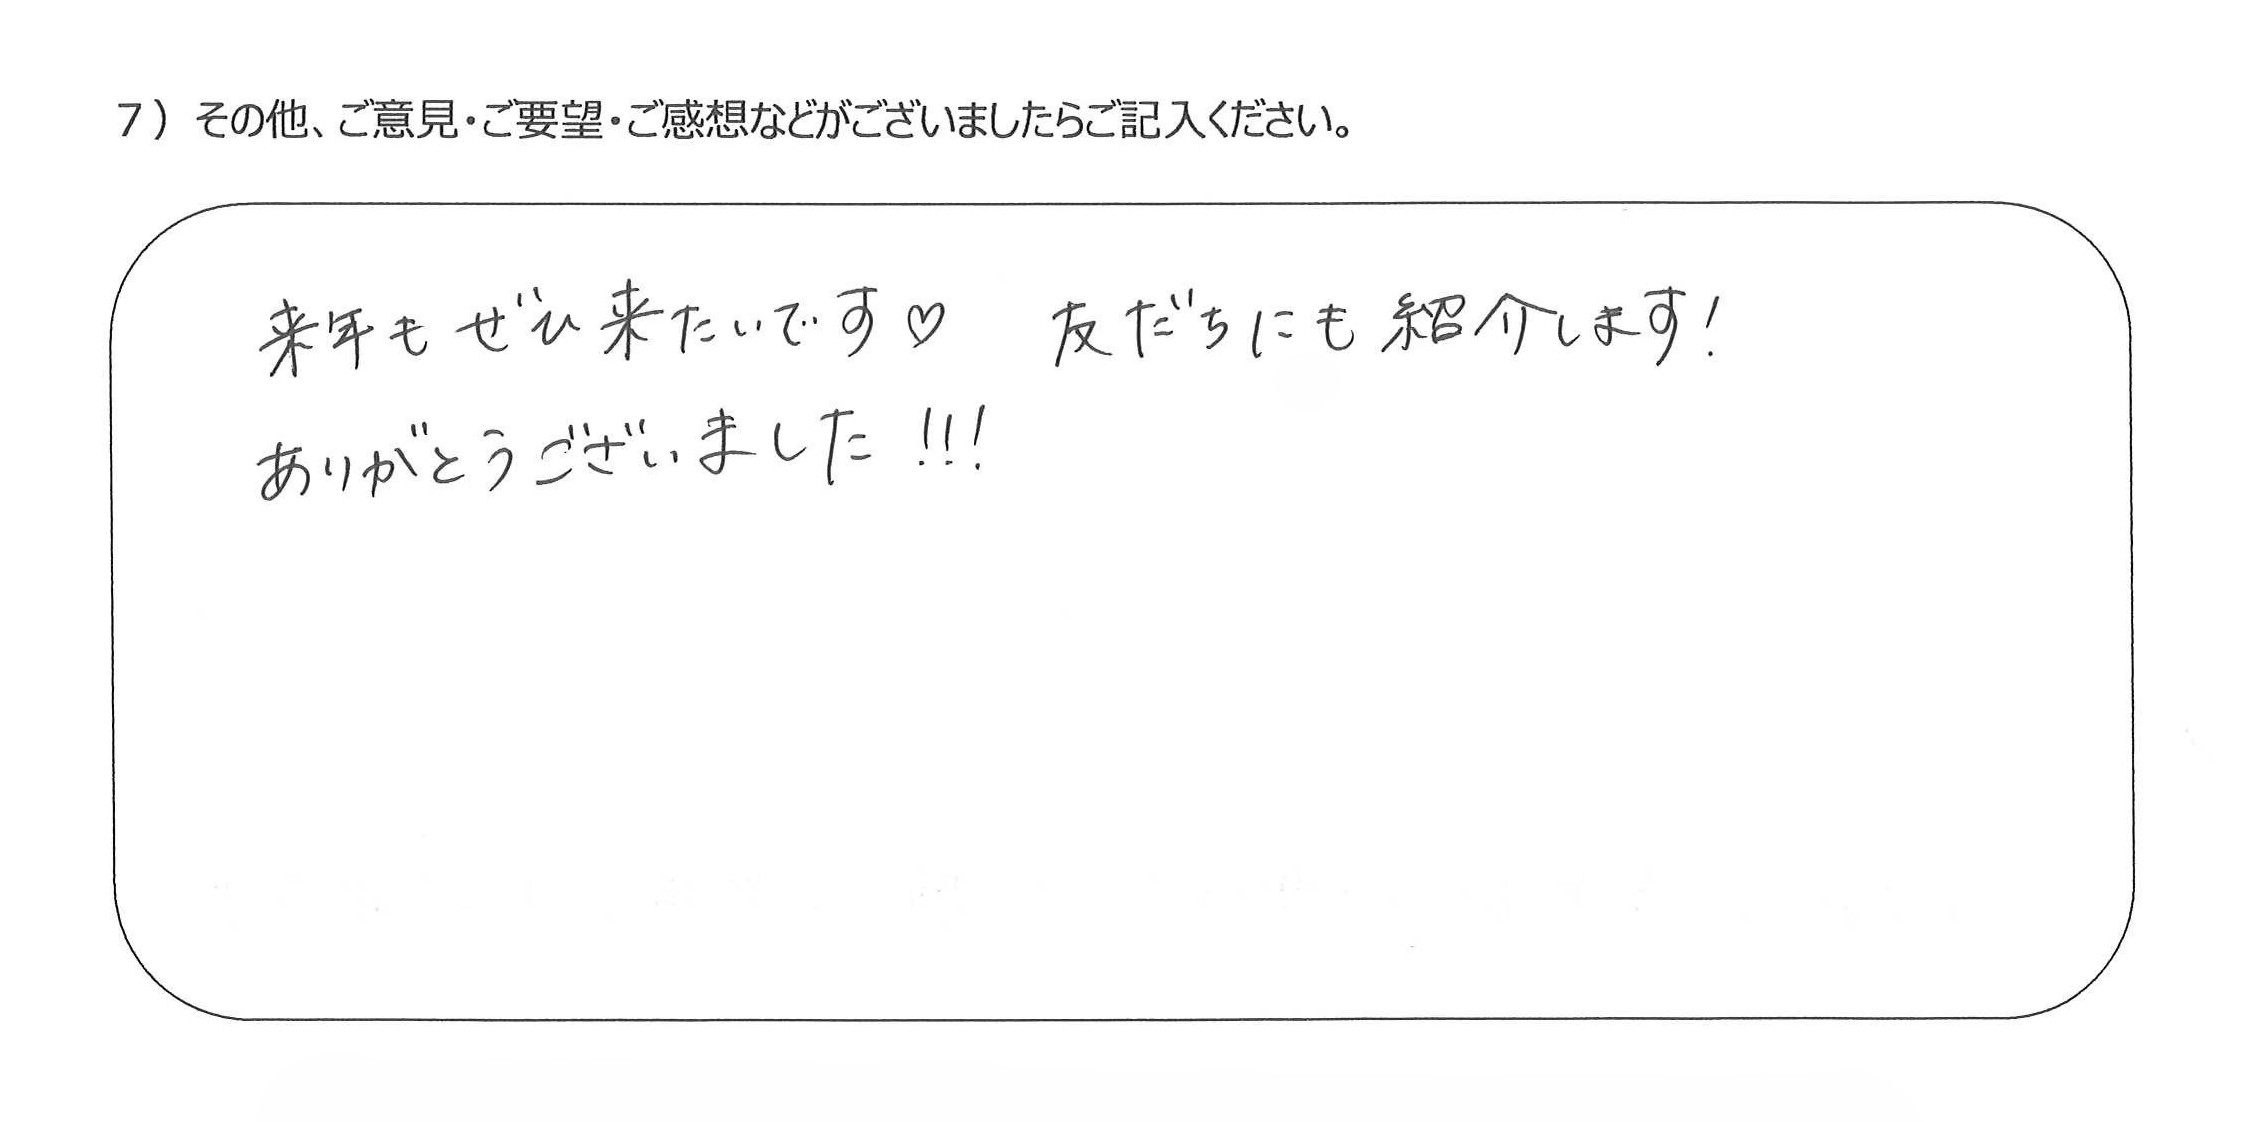 7）その他、ご意見・ご要望・ご感想などがございましたらご記入ください。
来年もぜひ来たいです♡　友だちにも紹介します！
ありがとうございました!!!